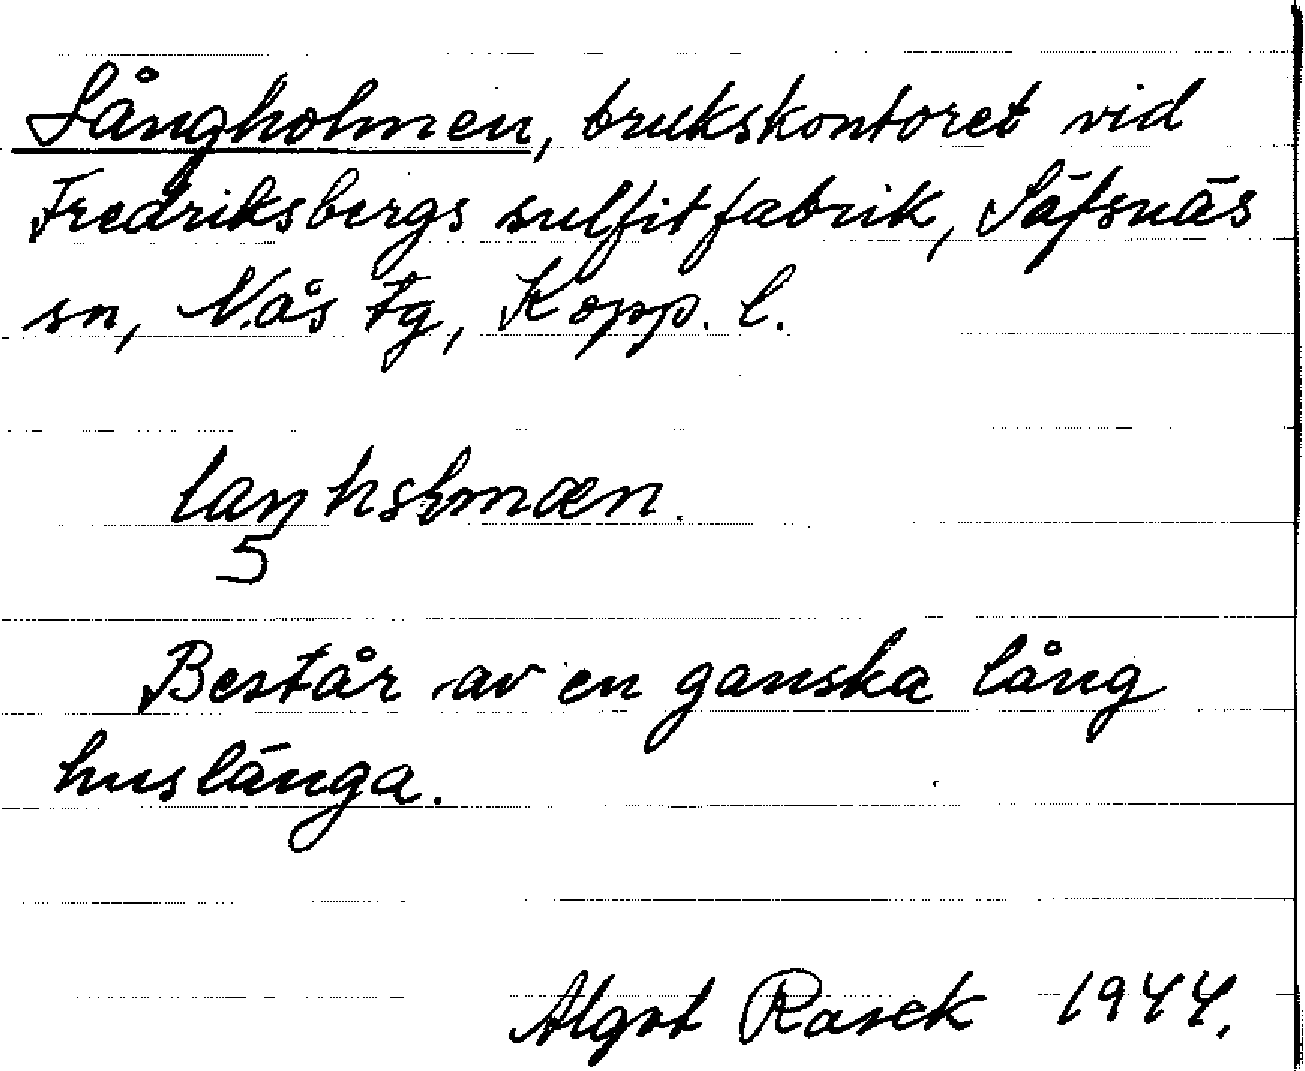 Långholmen, brukskontoret vid
Fredriksbergs sulfitfabrik, Säfsnäs
sn, Nås tg, Kopp. l.
Består av en ganska lång
huslänga.
Algot Rasck 1944.